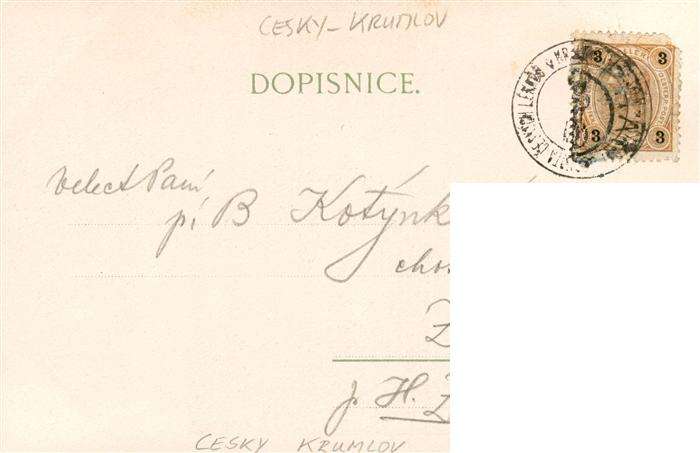 CESKY-KRUMLOV
DOPISNICE.
3 3
3 3
velect. Paní
pí B Kotýnk
cho
Z
p. H. Z
CESKY KRUMLOV